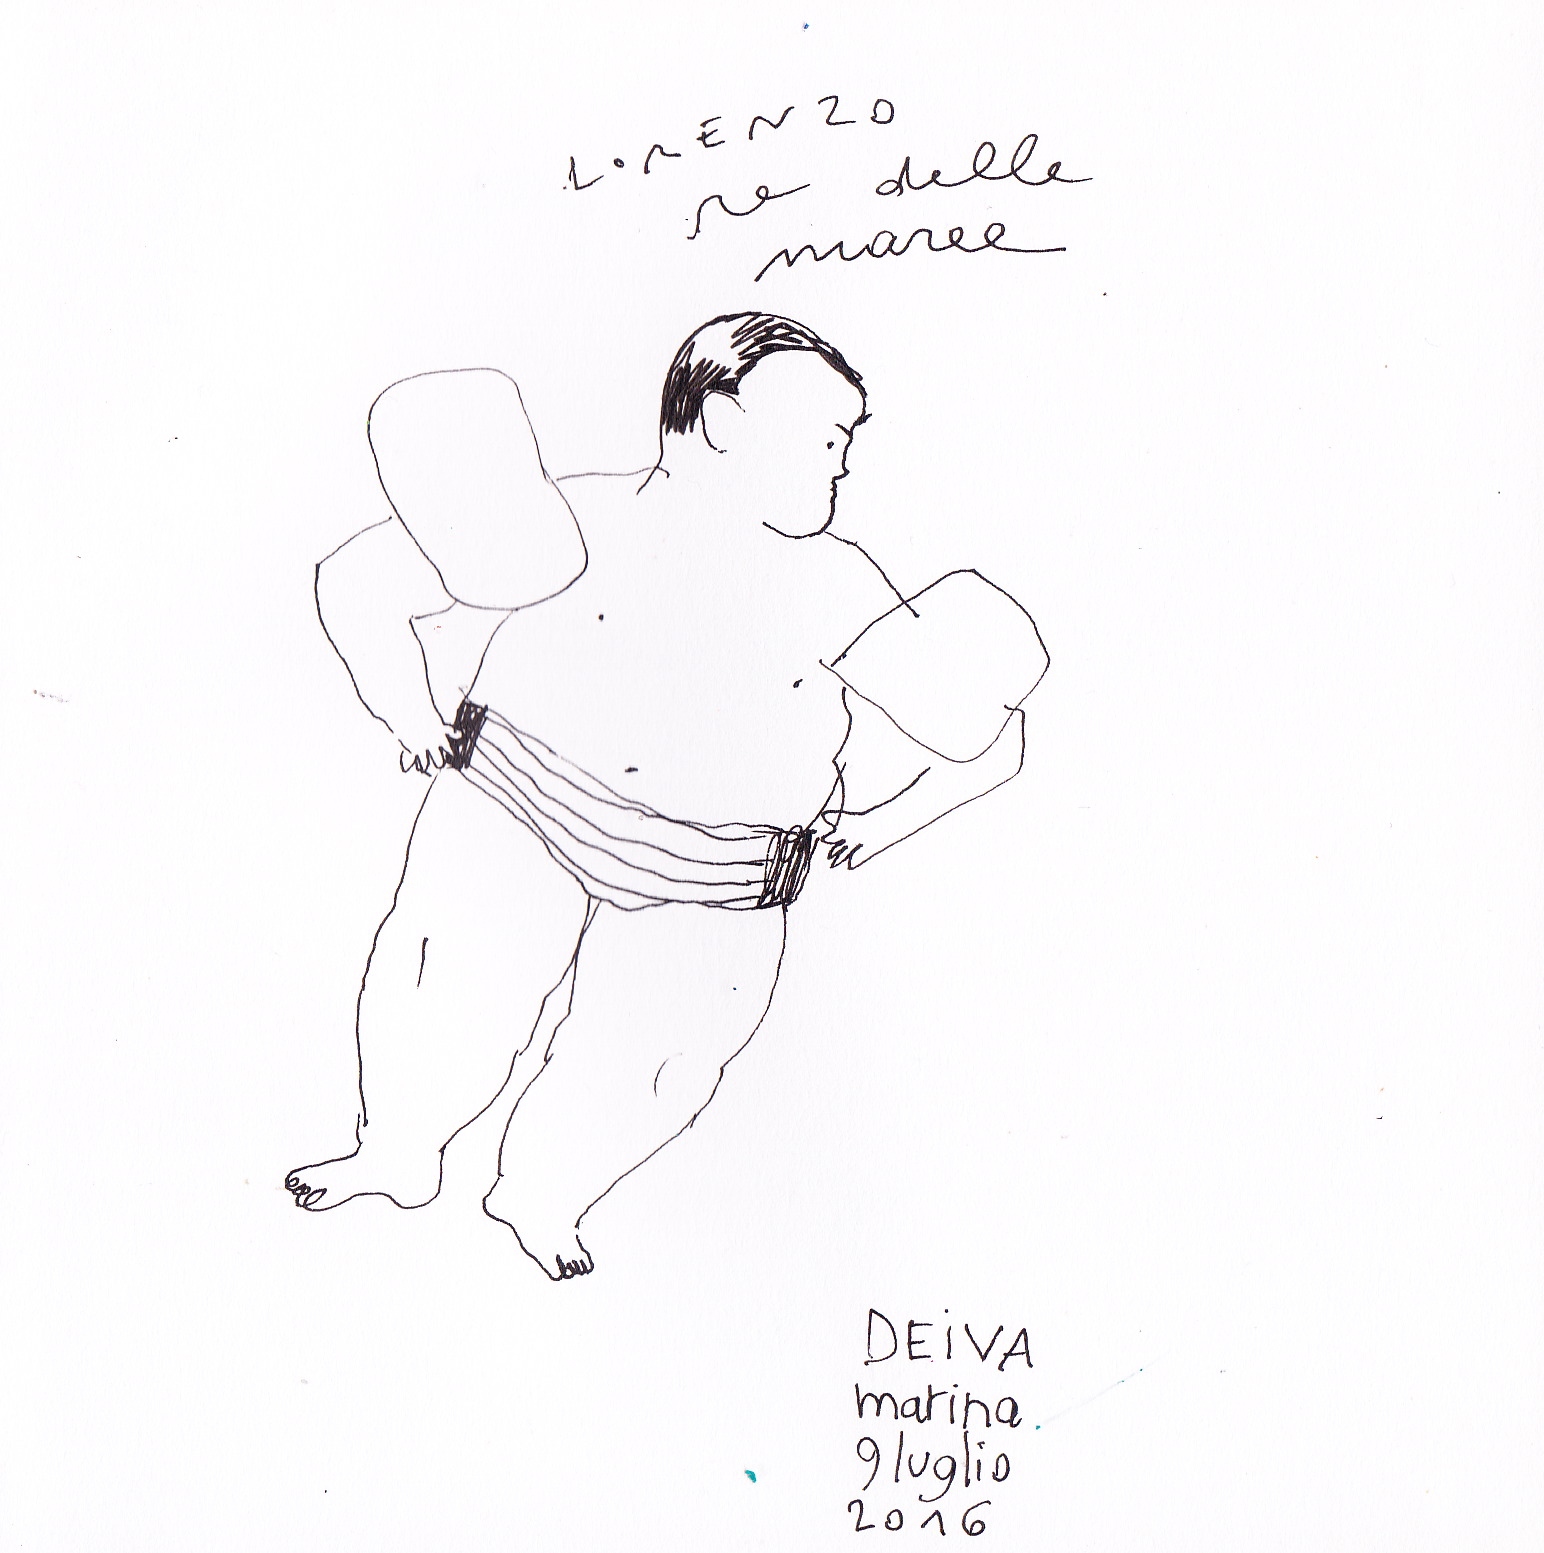 LORENZO
re delle
maree
DEiVA
marina
9 luglio
2016